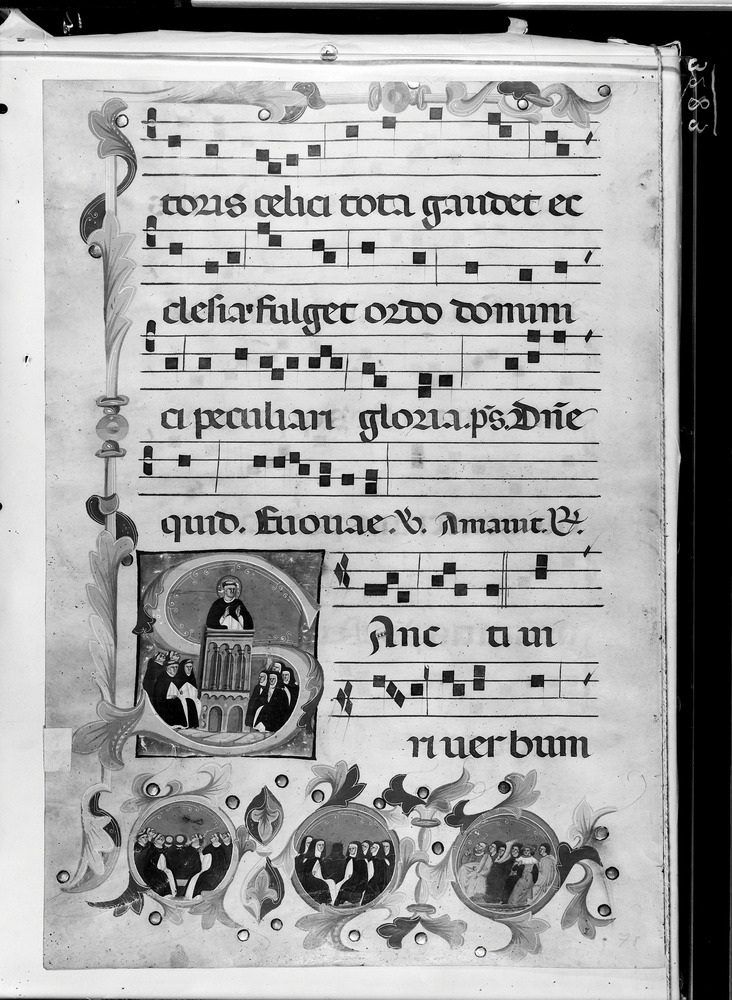 toris celici tota gaudet ec
clesia. fulget ordo domini
ci peculiari gloria. p̄s. Dn̄e
quid. Euouae. V. Amauit. R.
Sanc ti ui
ri uerbum
3288
78